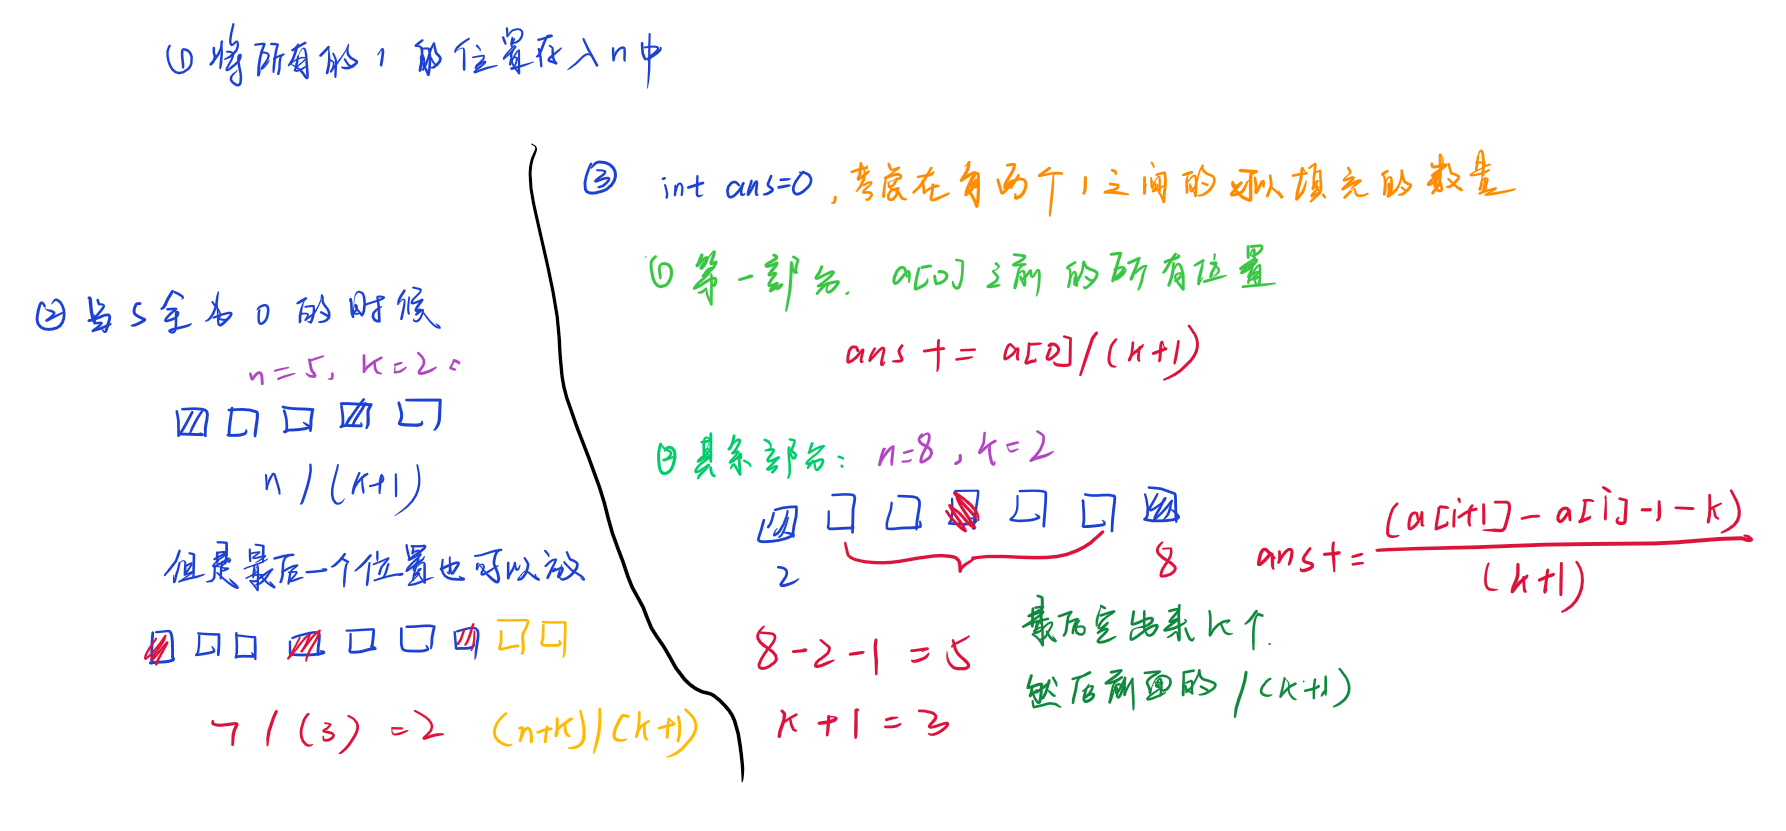 ① 将所有的 1 的位置存入 n 中
② 当 S 全为 0 的时候
n=5, k=2
n/(k+1)
但是最后一个位置也可以放
7/(3)=2 (n+k)/(k+1)
③ int ans=0,考虑在有两个1之间的可以填充的数量
① 第一部分. a[0]之前的所有位置
ans += a[0]/(k+1)
② 其余部分: n=8, k=2
2
8
8-2-1=5
k+1=3
最后空出来k个.
然后前面的/(k+1)
ans+= (a[i+1]-a[i]-1-k)
(k+1)